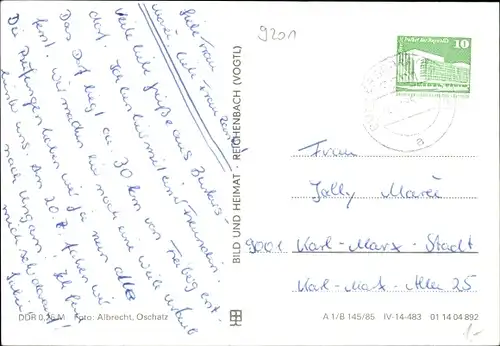 9201
Liebe Frau
Marie, liebe Frau
viele liebe Grüße aus Burkers-
dorf. Ich bin hier mit einer Freundin.
Das Dorf liegt ca. 30 km von Freiberg ent-
fernt. Wir machen hier noch eine Weile Urlaub
Die Prüfungen haben wir ja nun alle
hinter uns. Am 20.7. fahren wir
nach Ungarn. Ich freue
mich schon darauf!
DDR 0,25 M Foto: Albrecht, Oschatz
BILD UND HEIMAT REICHENBACH (VOGTL)
Palast der Republik
10
DDR
Frau
Jolly Marie
9001 Karl-Marx-Stadt
Karl-Marx-Allee 25
A 1/B 145/85 IV-14-483 01 14 04 892
1,-